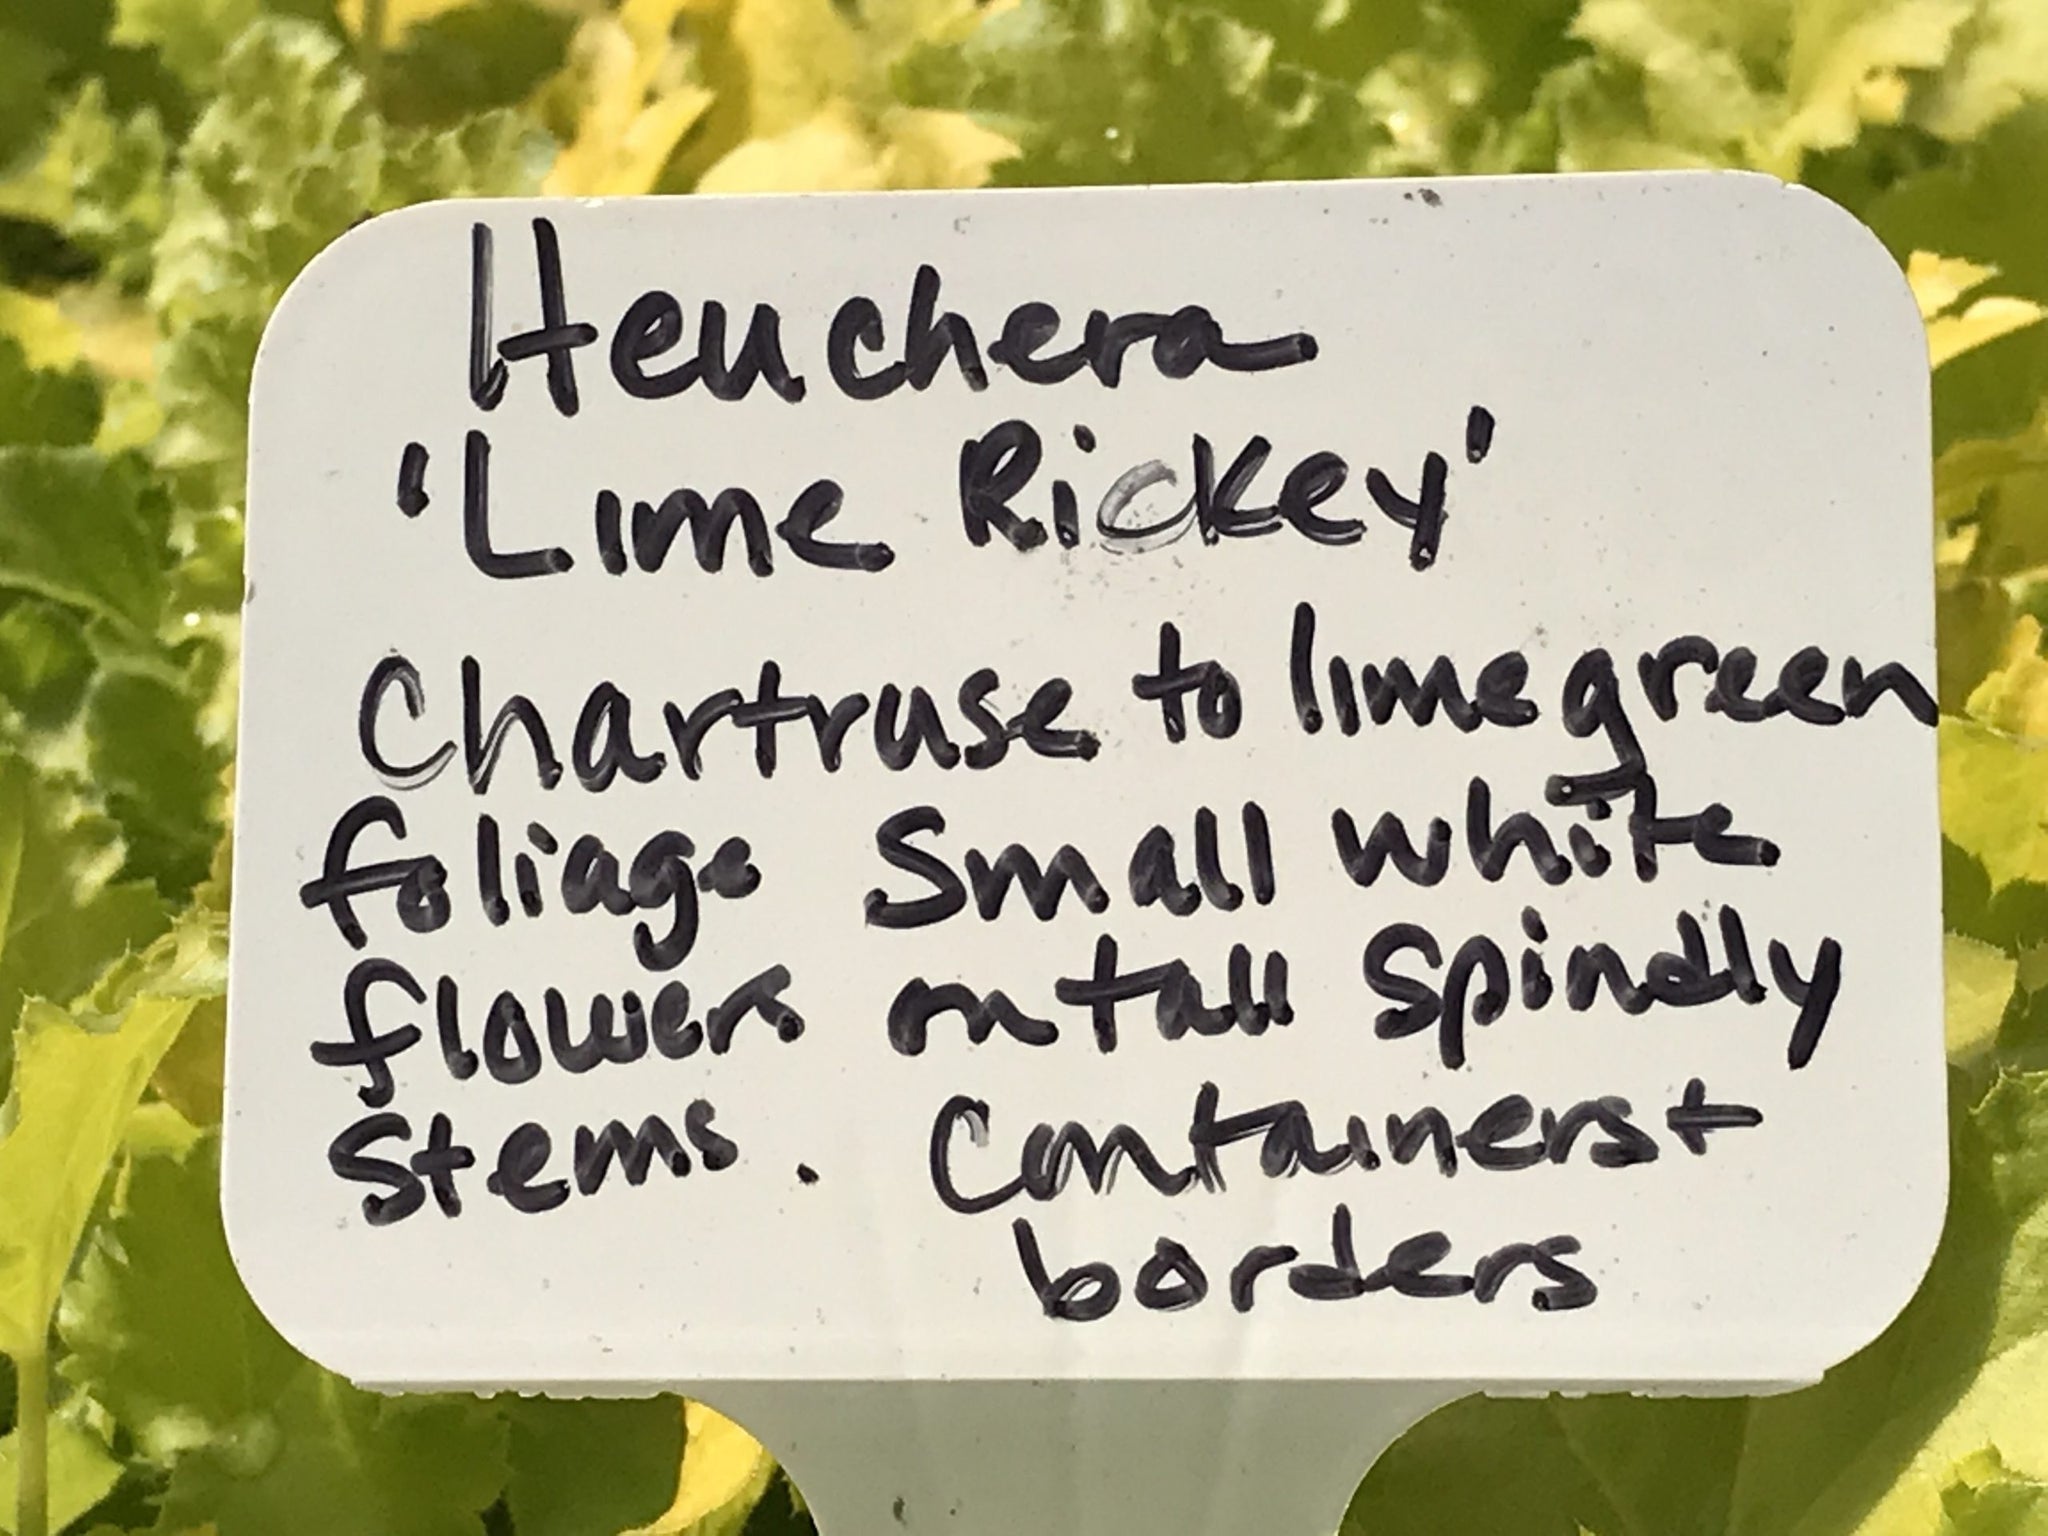 Heuchera
'Lime Rickey'
Chartruse to lime green
foliage Small white
flowers on tall spindly
stems. Containers +
borders